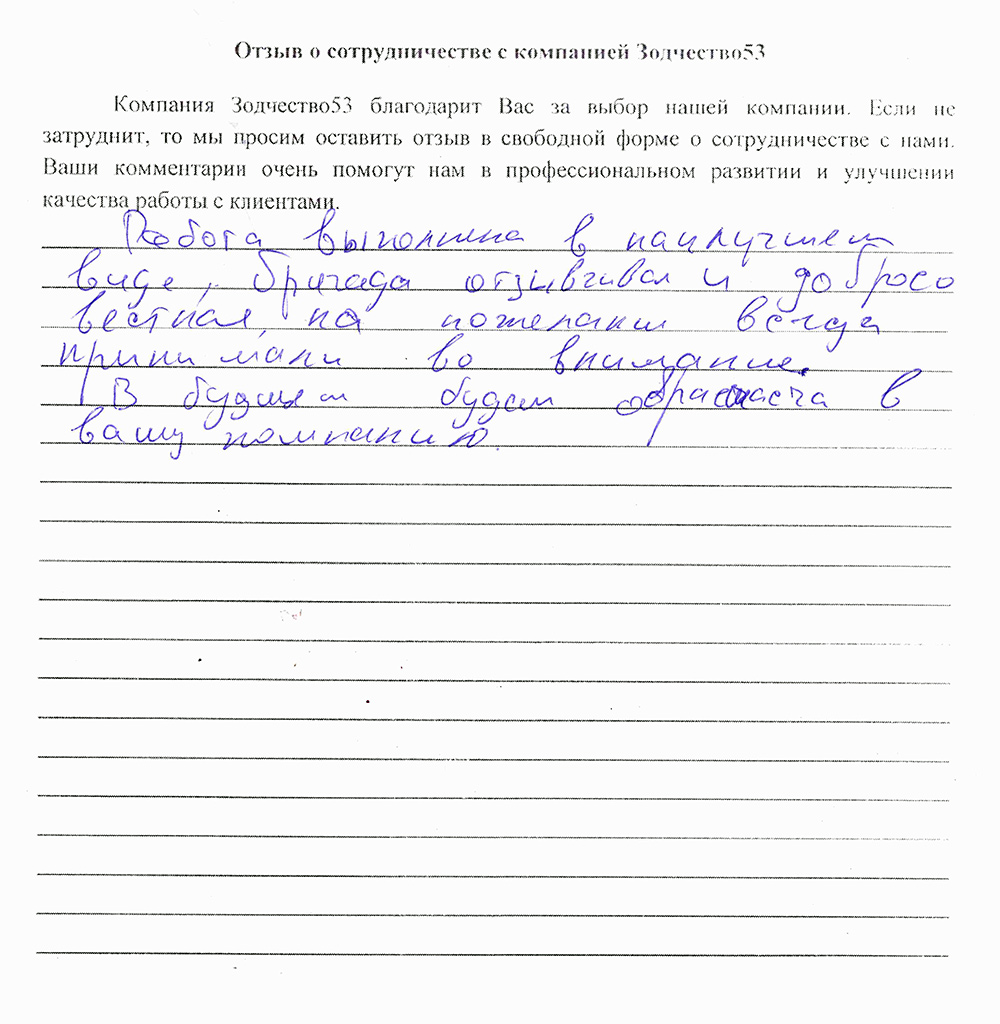 Отзыв о сотрудничестве с компанией Зодчество53
Компания Зодчество53 благодарит Вас за выбор нашей компании. Если не
затруднит, то мы просим оставить отзыв в свободной форме о сотрудничестве с нами.
Ваши комментарии очень помогут нам в профессиональном развитии и улучшении
качества работы с клиентами.
Работа выполнена в наилучшем
виде, бригада отзывчивая и добросо
вестная, на пожелания всегда
принимали во внимание.
В будущем будем обращаться в
вашу компанию.